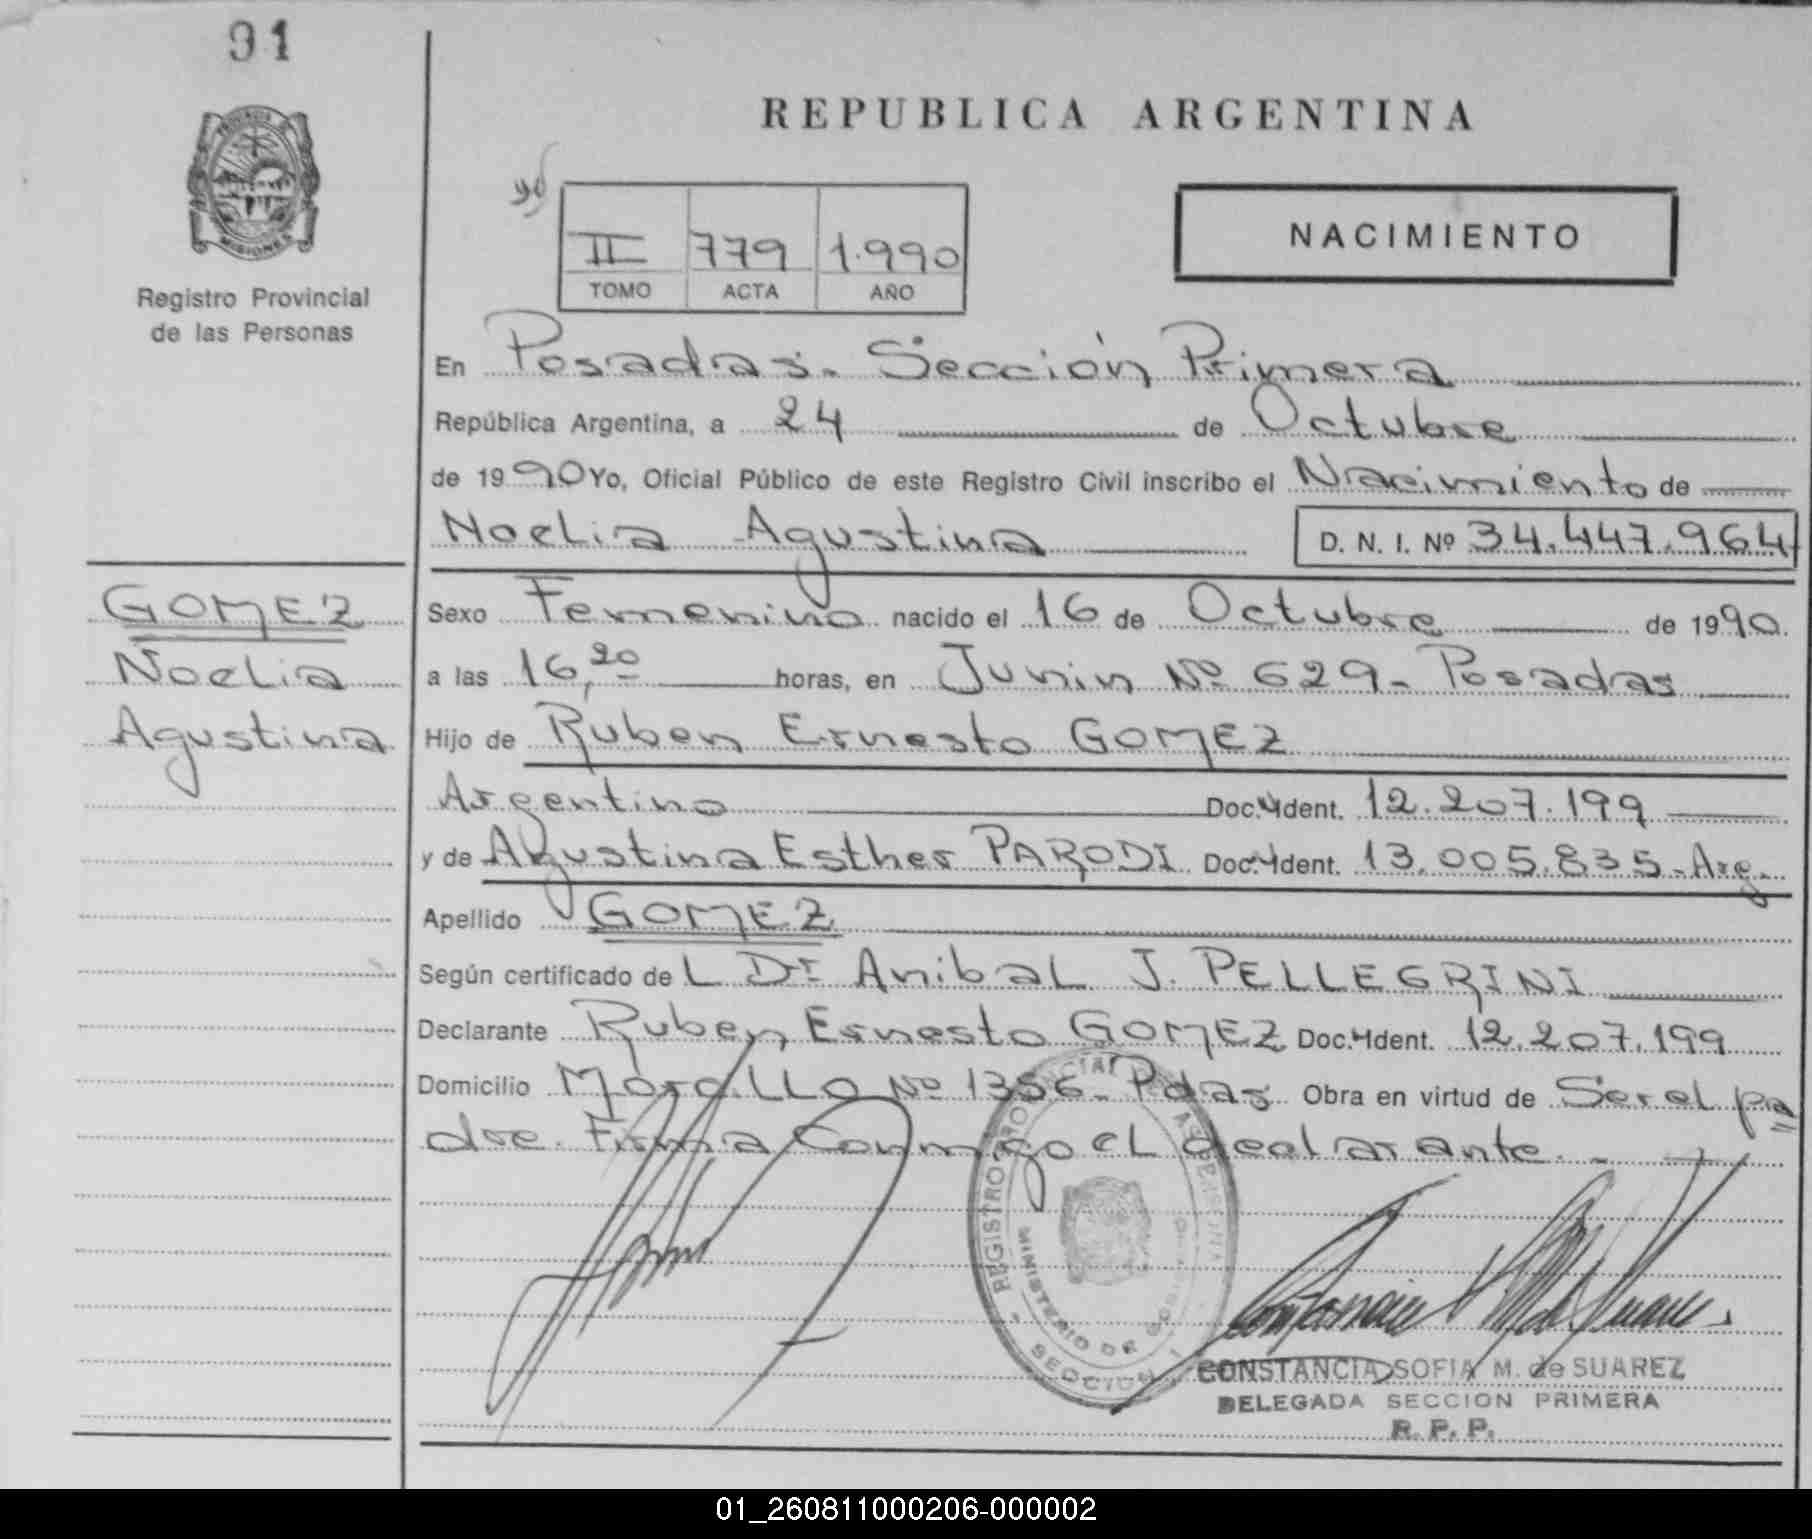 91
REPUBLICA ARGENTINA
PROVINCIA DE
MISIONES
Registro Provincial
de las Personas
II 779 1.990
TOMO ACTA AÑO
NACIMIENTO
En Posadas. Sección Primera
República Argentina, a 24 de Octubre
de 1990 Yo, Oficial Público de este Registro Civil inscribo el Nacimiento de
Noelia Agustina D. N. I. Nº 34.447.964
GOMEZ
Noelia
Agustina
Sexo Femenino nacido el 16 de Octubre de 1990.
a las 16,20 horas, en Junin Nº 629- Posadas
Hijo de Ruben Ernesto GOMEZ
Argentino Doc. Ident. 12.207.199
y de Agustina Esther PARODI Doc. Ident. 13.005.835-Arg.
Apellido GOMEZ
Según certificado de L Dr Anibal J. PELLEGRINI
Declarante Ruben Ernesto GOMEZ Doc. Ident. 12.207.199
Domicilio Nº 1356- Pdas Obra en virtud de Ser el pa
dre. Firma Conmigo el declarante.-
REGISTRO PROVINCIAL DE LAS PERSONAS
MINISTERIO DE GOBIERNO
SECCION 1
CONSTANCIA SOFIA M. de SUAREZ
DELEGADA SECCION PRIMERA
R. P. P.
01_260811000206-000002